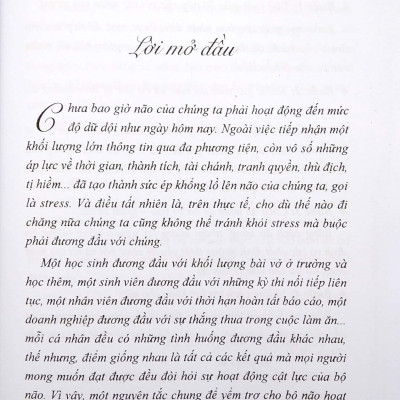 Lời mở đầu
Chưa bao giờ não của chúng ta phải hoạt động đến mức
độ dữ dội như ngày hôm nay. Ngoài việc tiếp nhận một
khối lượng lớn thông tin qua đa phương tiện, còn vô số những
áp lực về thời gian, thành tích, tài chánh, tranh quyền, thù địch,
tị hiềm... đã tạo thành sức ép khổng lồ lên não của chúng ta, gọi
là stress. Và điều tất nhiên là, trên thực tế, cho dù thế nào đi
chăng nữa chúng ta cũng không thể tránh khỏi stress mà buộc
phải đương đầu với chúng.
Một học sinh đương đầu với khối lượng bài vở ở trường và
học thêm, một sinh viên đương đầu với những kỳ thi nối tiếp liên
tục, một nhân viên đương đầu với thời hạn hoàn tất báo cáo, một
doanh nghiệp đương đầu với sự thắng thua trong cuộc làm ăn...
mỗi cá nhân đều có những tình huống đương đầu khác nhau,
thế nhưng, điểm giống nhau là tất cả các kết quả mà mọi người
mong muốn đạt được đều đòi hỏi sự hoạt động cật lực của bộ
não. Vì vậy, một nguyên tắc chung để yểm trợ cho bộ não hoạt